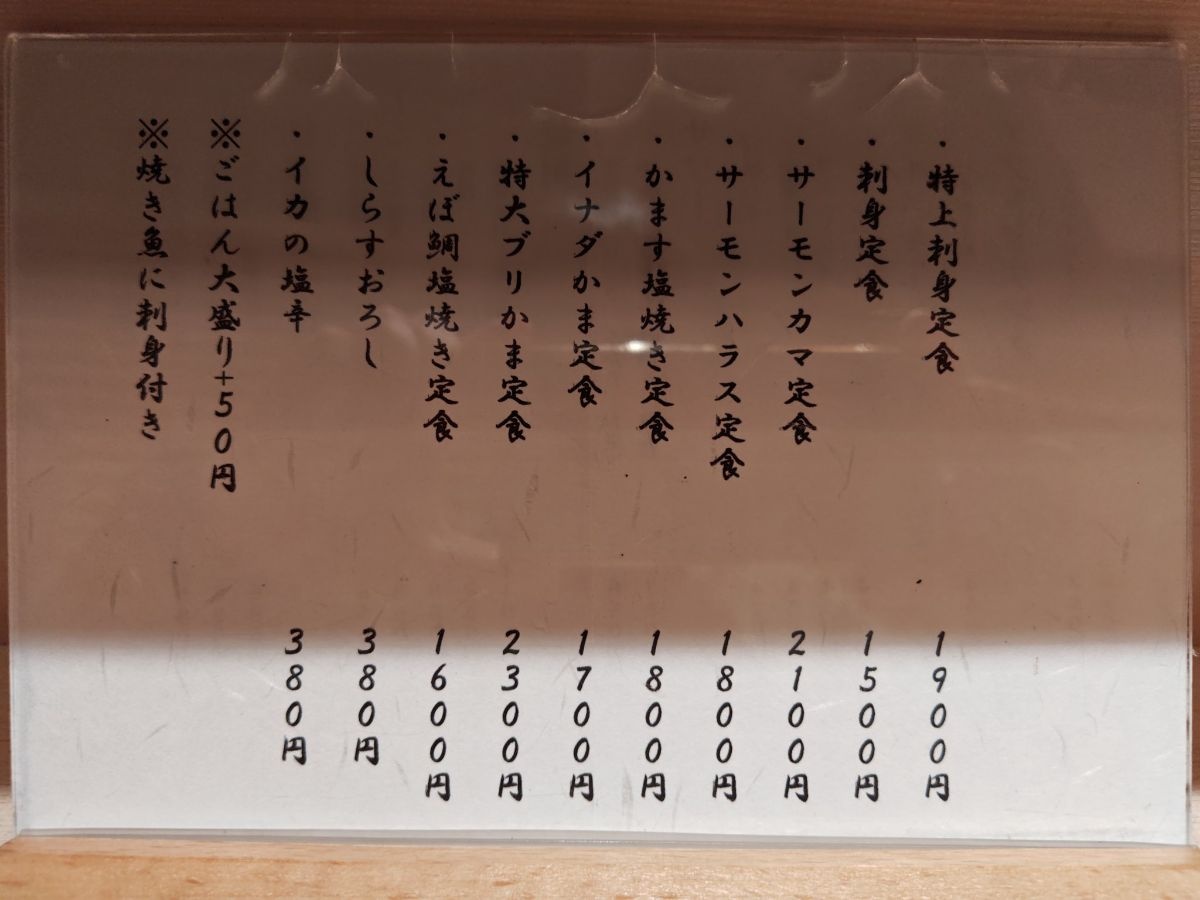 ・特上刺身定食 1900円
・刺身定食 1500円
・サーモンカマ定食 2100円
・サーモンハラス定食 1800円
・かます塩焼き定食 1800円
・イナダかま定食 1700円
・特大ブリかま定食 2300円
・えぼ鯛塩焼き定食 1600円
・しらすおろし 380円
・イカの塩辛 380円
※ごはん大盛り+50円
※焼き魚に刺身付き